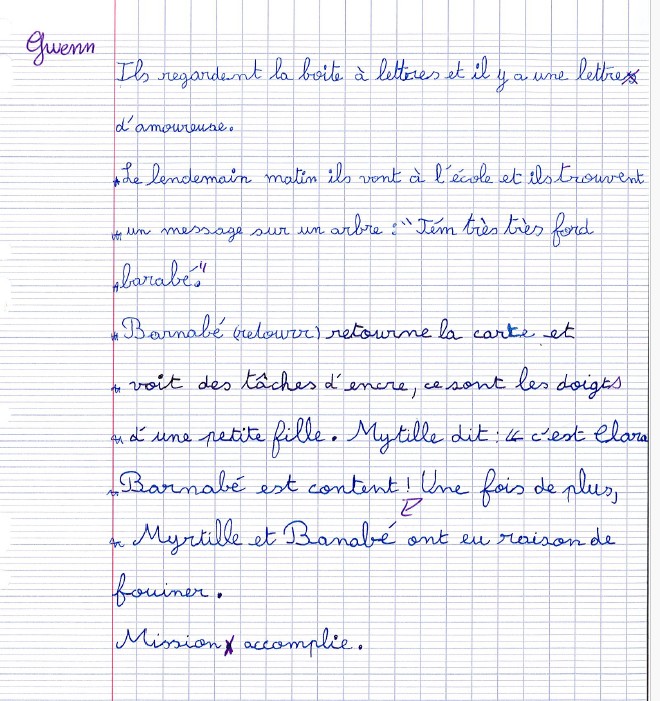 Gwenn
Ils regardent la boite à lettres et il y a une lettre
d'amoureuse.
Le lendemain matin ils vont à l'école et ils trouvent
un message sur un arbre : "Tém très très ford
barabé."
Barnabé (retourr) retourne la carte et
voit des tâches d'encre, ce sont les doigts
d'une petite fille. Mytille dit : " c'est Clara
Barnabé est content ! Une fois de plus,
Myrtille et Banabé ont eu raison de
fouiner.
Mission accomplie.